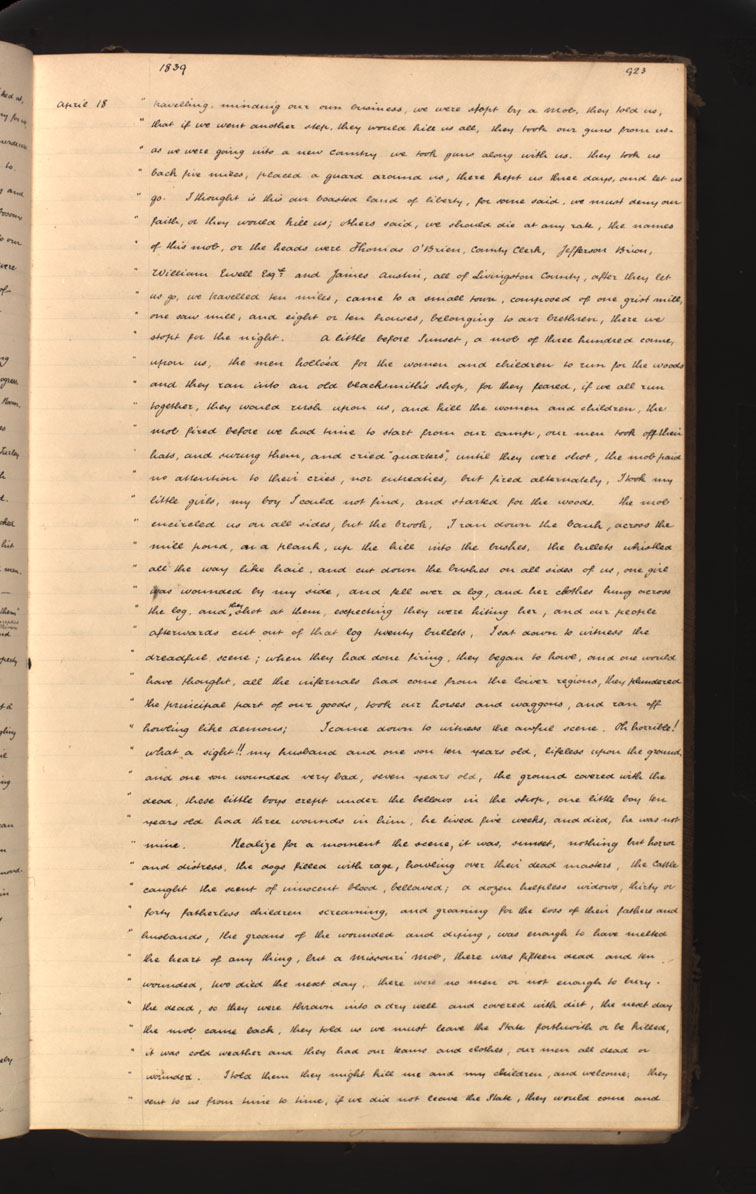 1839
923
April 18 " travelling, minding our own business, we were stopt by a mob, they told us,
" that if we went another step, they would kill us all, they took our guns from us,
" as we were going into a new country we took guns along with us. they took us
" back five miles, placed a guard around us, there kept us three days, and let us
" go. I thought is this our boasted land of liberty, for some said, we must deny our
" faith, or they would kill us; others said, we should die at any rate, the names
" of this mob, or the heads were Thomas O'Brien, County Clerk, Jefferson Brien,
" William Ewell Esqre. and James Austin, all of Livingston County, after they let
" us go, we travelled ten miles, came to a small town, composed of one grist mill,
" one saw mill, and eight or ten houses, belonging to our brethren, there we
" stopt for the night. A little before Sunset, a mob of three hundred came,
" upon us, the men hollo'd for the women and children to run for the woods
" and they ran into an old blacksmith's shop, for they feared, if we all run
" together, they would rush upon us, and kill the women and children, the
" mob fired before we had time to start from our camp, our men took off their
" hats, and swung them, and cried "quarters", until they were shot, the mob paid
" no attention to their cries, nor entreaties, but fired alternately, I took my
" little girls, my boy I could not find, and started for the woods. the mob
" encircled us on all sides, but the brook, I ran down the bank, across the
" mill pond, on a plank, up the hill into the bushes. the bullets whistled
" all the way like hail, and cut down the bushes on all sides of us, one girl
" was wounded by my side, and fell over a log, and her clothes hung across
" the log, and they shot at them, expecting they were hiting her, and our people
" afterwards cut out of that log twenty bullets, I sat down to witness the
" dreadful scene; when they had done firing, they began to howl, and one would
" have thought, all the infernals had come from the lower regions, they plundered
" the principal part of our goods, took our horses and waggons, and ran off
" howling like demons; I came down to witness the awful scene. Oh horrible!
" what a sight!! my husband and one son ten years old, lifeless upon the ground,
" and one son wounded very bad, seven years old, the ground covered with the
" dead, these little boys crept under the bellows in the shop, one little boy ten
" years old had three wounds in him, he lived five weeks, and died, he was not
" mine. Realize for a moment the scene, it was, sunset, nothing but horror
" and distress, the dogs filled with rage, howling over their dead masters, the cattle
" caught the scent of innocent blood, bellowed; a dozen helpless widows, thirty or
" forty fatherless children screaming, and groaning for the loss of their fathers and
" husbands, the groans of the wounded and dying, was enough to have melted
" the heart of any thing, but a Missouri mob, there was fifteen dead and ten
" wounded, two died the next day, there were no men or not enough to bury
" the dead, so they were thrown into a dry well and covered with dirt, the next day
" the mob came back, they told us we must leave the State forthwith or be killed,
" it was cold weather and they had our teams and clothes, our men all dead or
" wounded. I told them they might kill me and my children, and welcome; they
" sent to us from time to time, if we did not leave the State, they would come and